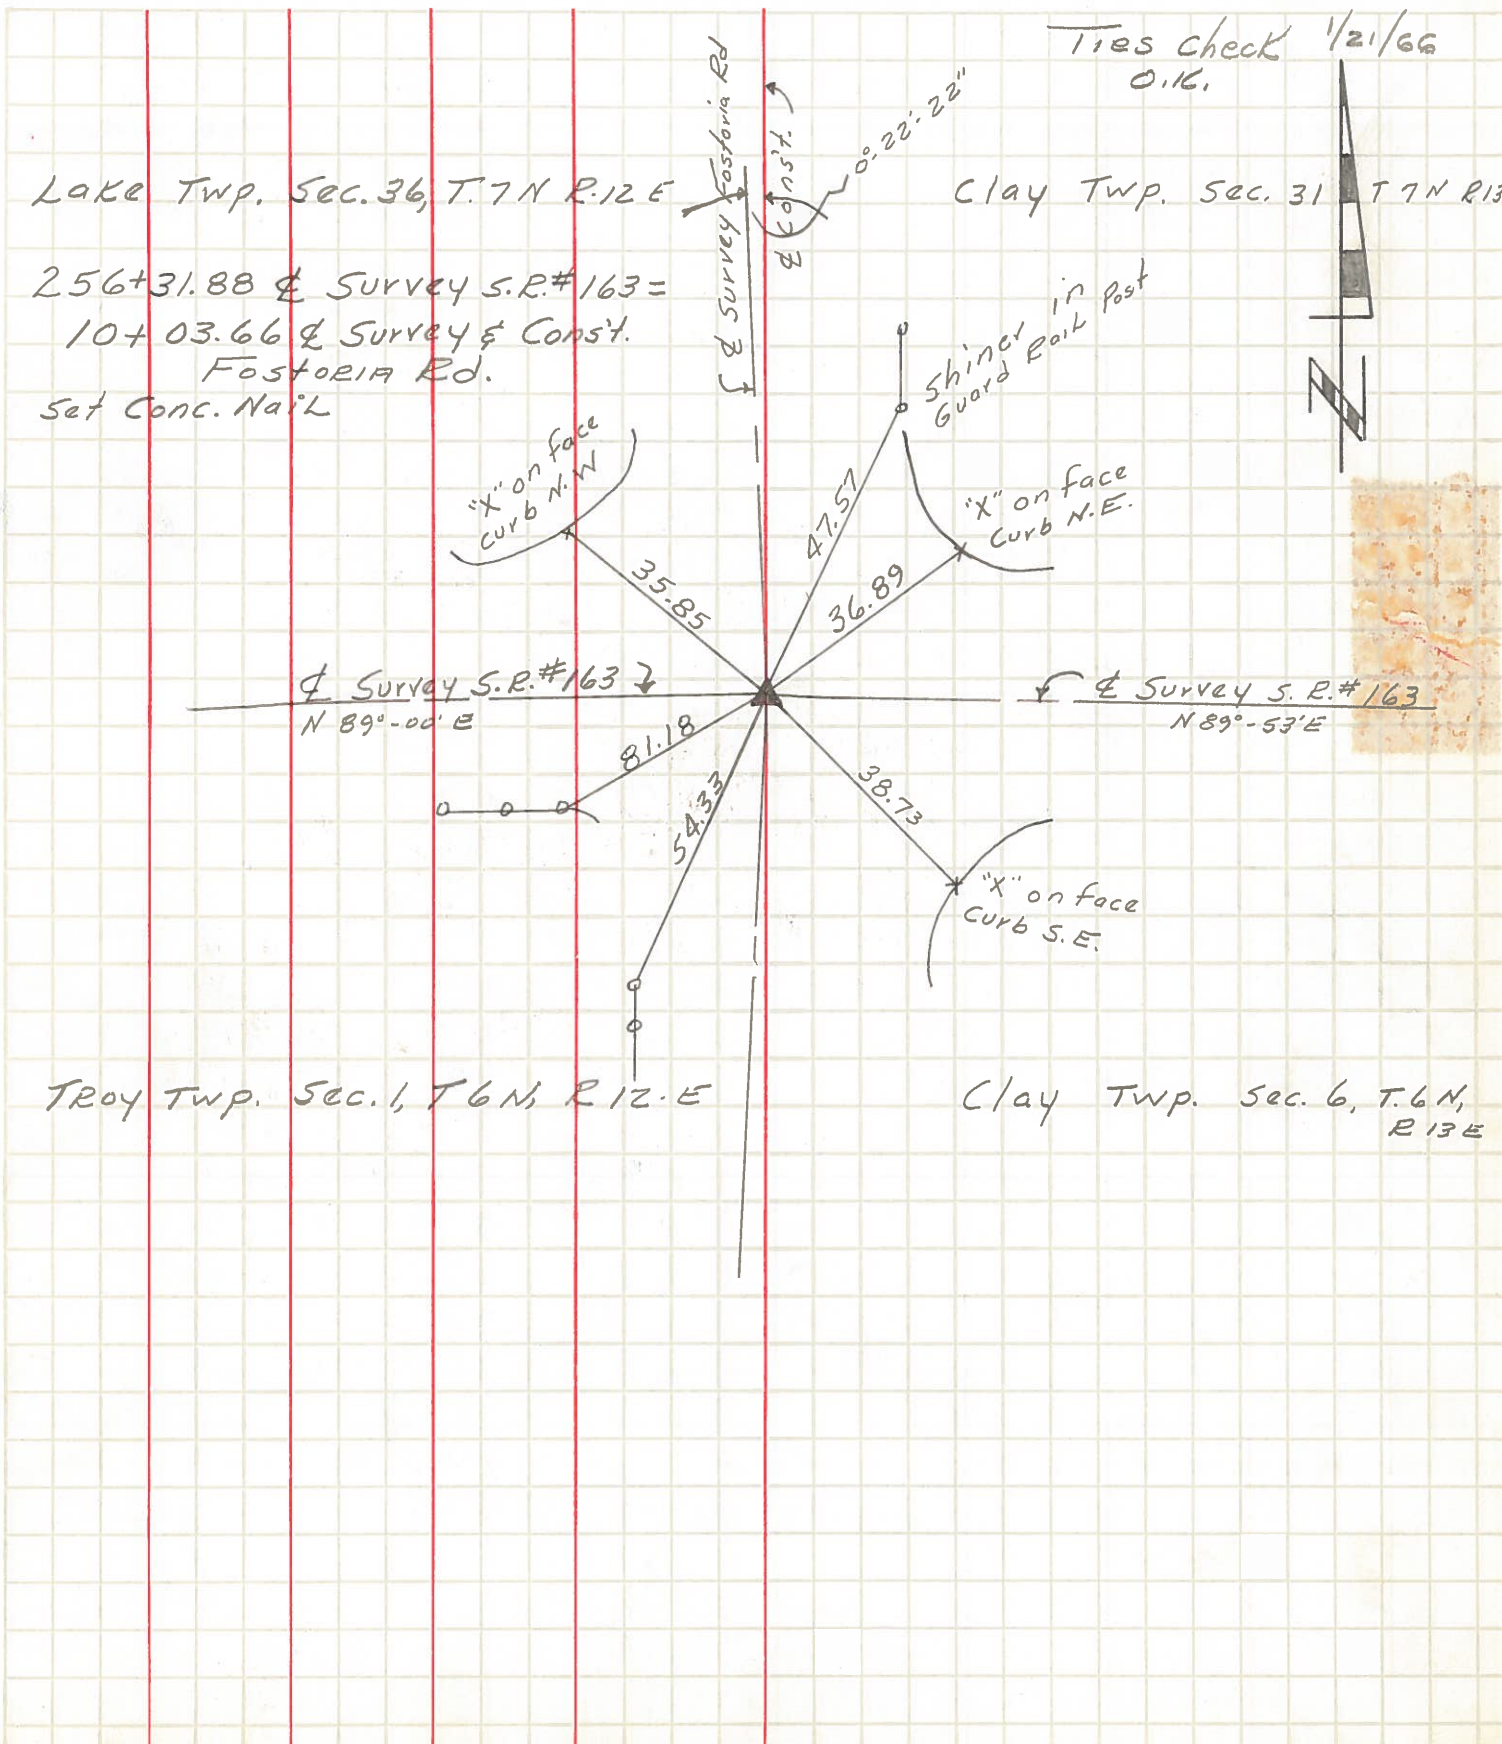 Ties Check 1/21/66
O.K.
Fostoria Rd
℄ Survey
℄ Const.
0°-22'-22"
Lake Twp. Sec. 36, T. 7 N R. 12 E
Clay Twp. Sec. 31 T 7 N R13
256+31.88 ℄ Survey S.R.# 163 =
10+03.66 ℄ Survey & Const.
Fostoria Rd.
Set Conc. Nail
N
Shiner in
Guard Rail Post
"X" on face
Curb N.W
"X" on face
Curb N.E.
47.57
35.85
36.89
℄ Survey S.R.#163
N 89°-00' E
℄ Survey S.R.#163
N 89°-53' E
81.18
54.33
38.73
"X" on face
Curb S.E.
Troy Twp. Sec. 1, T 6 N, R 12. E
Clay Twp. Sec. 6, T. 6 N,
R 13 E